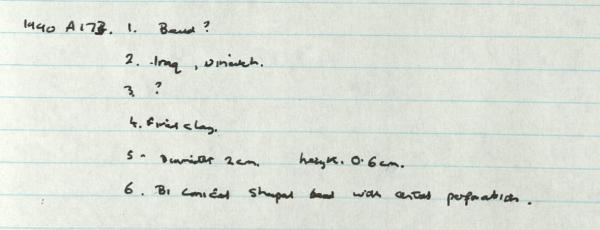 1990 A173. 1. Bead ?
2. Iraq, Nineveh.
3. ?
4. Fired clay.
5. Diameter 2cm. height. 0.6cm.
6. Bi conical shaped bead with central perforation.